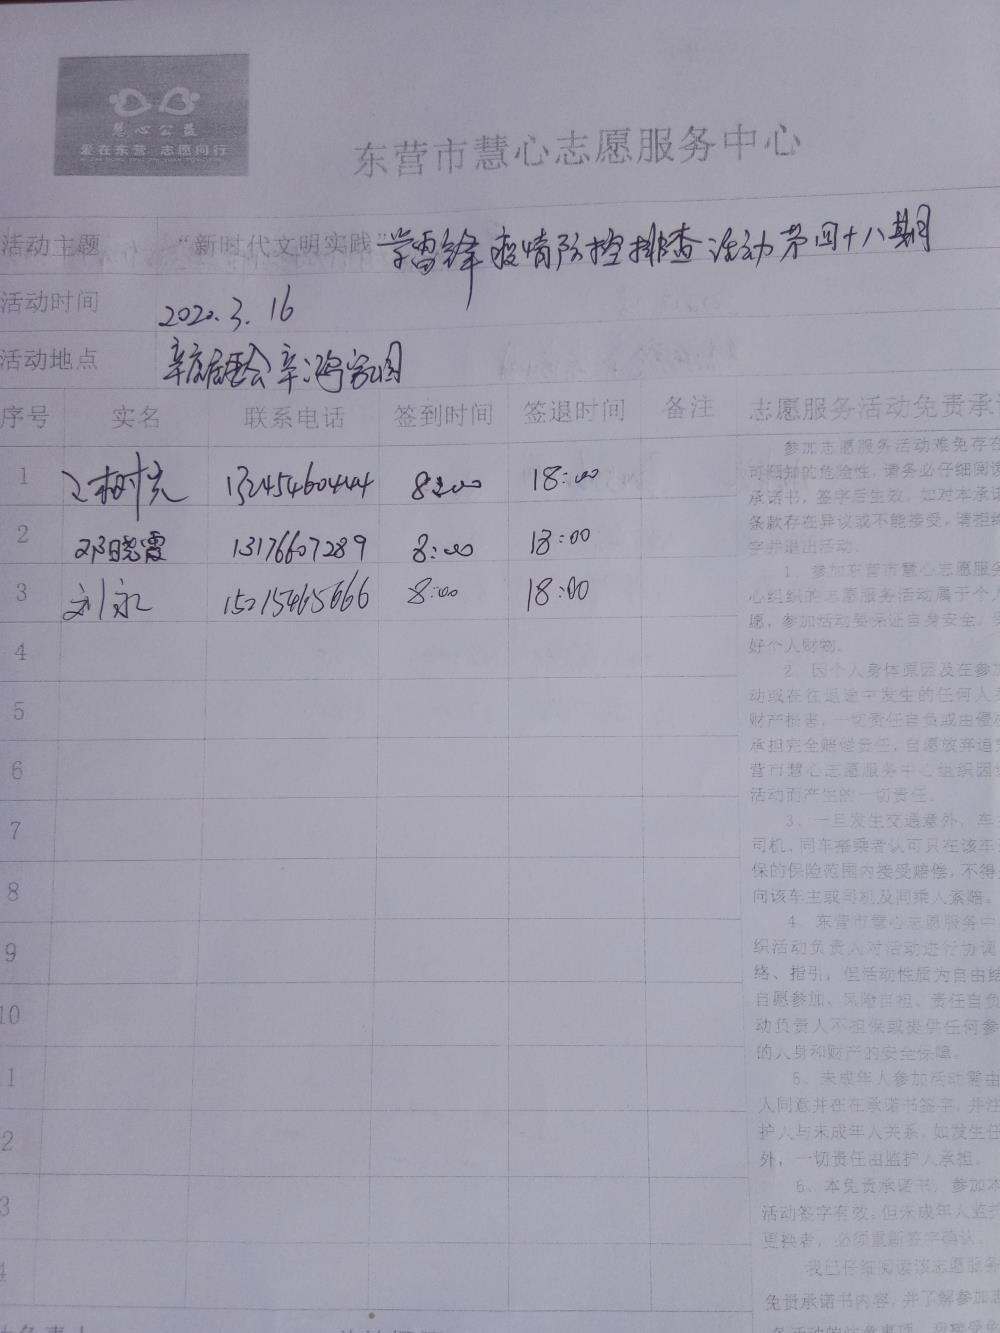 慧心公益
爱在东营 志愿同行
东营市慧心志愿服务中心
活动主题 “新时代文明实践”学雷锋疫情防控排查活动第四十八期
活动时间 2020.3.16
活动地点 辛店居委会辛鸿家园
序号 实名 联系电话 签到时间 签退时间 备注
1 13245460444 8:00 18:00
2 邓晓霞 13176607289 8:00 18:00
3 刘永 15215465666 8:00 18:00
4
5
6
7
8
9
10
1
2
3
4
志愿服务活动免责承
参加志愿服务活动难免存在
可预知的危险性,请务必仔细阅读
承诺书,签字后生效。如对本承诺
条款存在异议或不能接受,请拒绝
字并退出活动。
1、参加东营市慧心志愿服务
心组织的志愿服务活动属于个人
愿,参加活动要保证自身安全,
好个人财物。
2、因个人身体原因及在参加
动或在往返途中发生的任何人
财产损害,一切责任自负或由侵
承担完全赔偿责任,自愿放弃追究
营市慧心志愿服务中心组织因
活动而产生的一切责任。
3、一旦发生交通意外,车
司机、同车搭乘者认可只在该车
保的保险范围内接受赔偿,不得
向该车主或司机及同乘人索赔。
4、东营市慧心志愿服务中
织活动负责人对活动进行协调
络、指引,但活动性质为自由结
自愿参加、风险自担、责任自负
动负责人不担保或提供任何参
的人身和财产的安全保障。
5、未成年人参加活动需由
人同意并在在承诺书签字,并注
护人与未成年人关系,如发生任
外,一切责任由监护人承担。
6、本免责承诺书,参加本
活动签字有效。但未成年人监护
更换者,必须重新签字确认。
我已仔细阅读该志愿服务
免责承诺书内容,并了解参加志